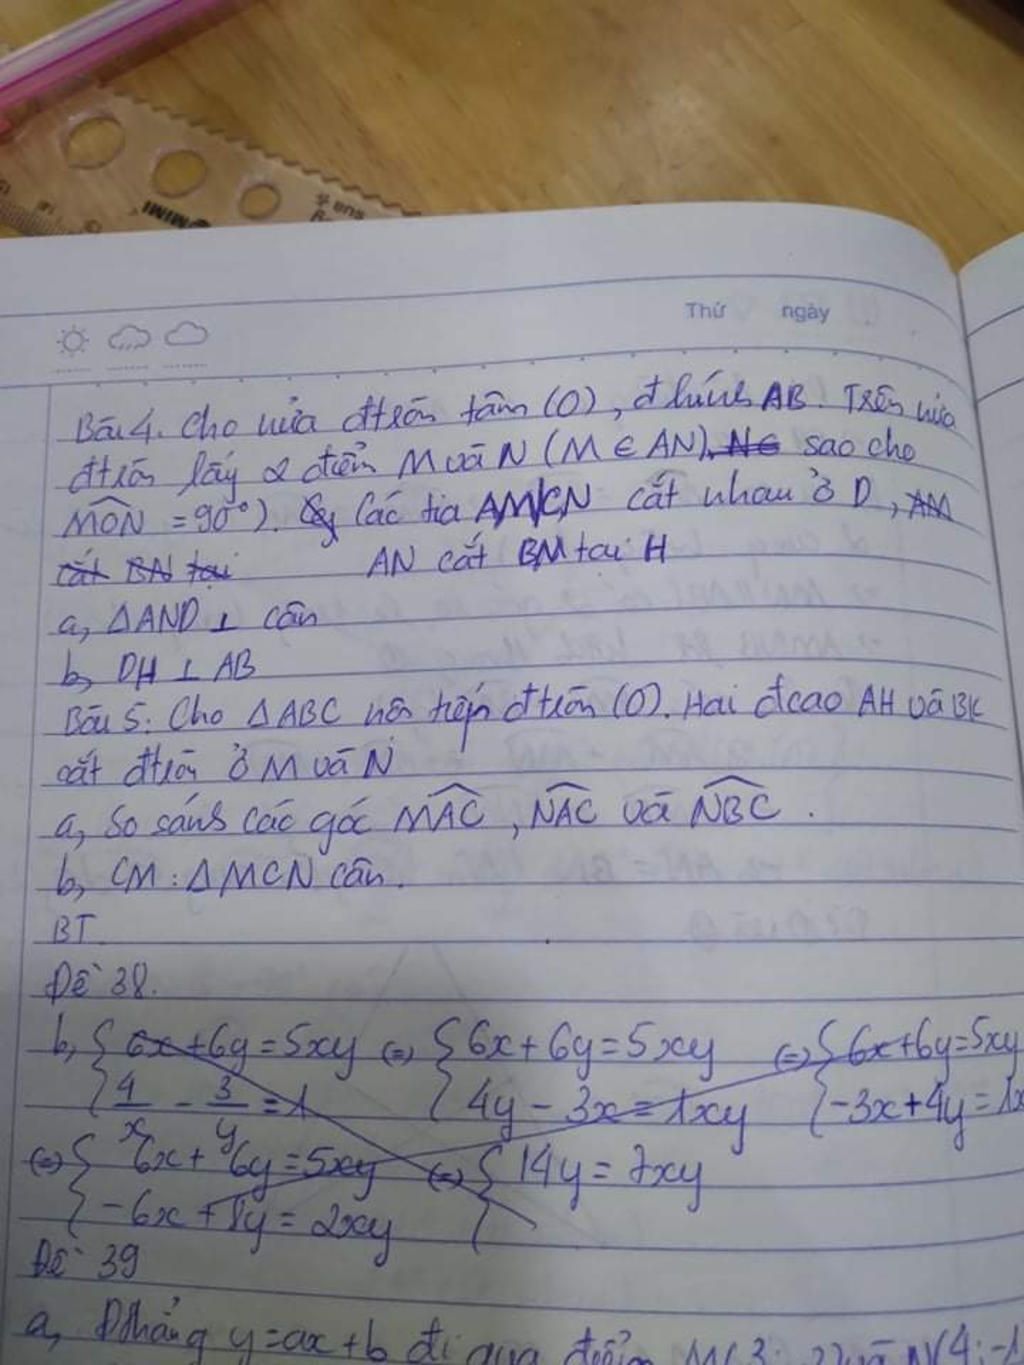 MIMI
Thứ ngày
Bài 4. Cho nửa đtròn tâm (O), đkính AB. Trên nửa
đtròn lấy 2 điểm M và N (M ∈ AN), N∈ sao cho
MON = 90°). Các tia AM/CN cắt nhau ở D, AM
cắt BN tại AN cắt BM tại H
a, ΔAND ⊥ cân
b, DH ⊥ AB
Bài 5. Cho ΔABC nội tiếp đtròn (O). Hai đcao AH và BK
cắt đtròn ở M và N
a, So sánh các góc MAC, NAC và NBC.
b, CM: ΔMCN cân.
BT
Đề 38.
b, { 6x + 6y = 5xy (=) { 6x + 6y = 5xy (=) { 6x + 6y = 5xy
{ 4/x - 3/y = 1 { 4y - 3x = 1xy { -3x + 4y = 1x
(=) { 6x + 6y = 5xy (=) { 14y = 7xy
{ -6x + 8y = 2xy {
Đề 39
a, Đthẳng y = ax + b đi qua điểm M(3; và N(4; -1